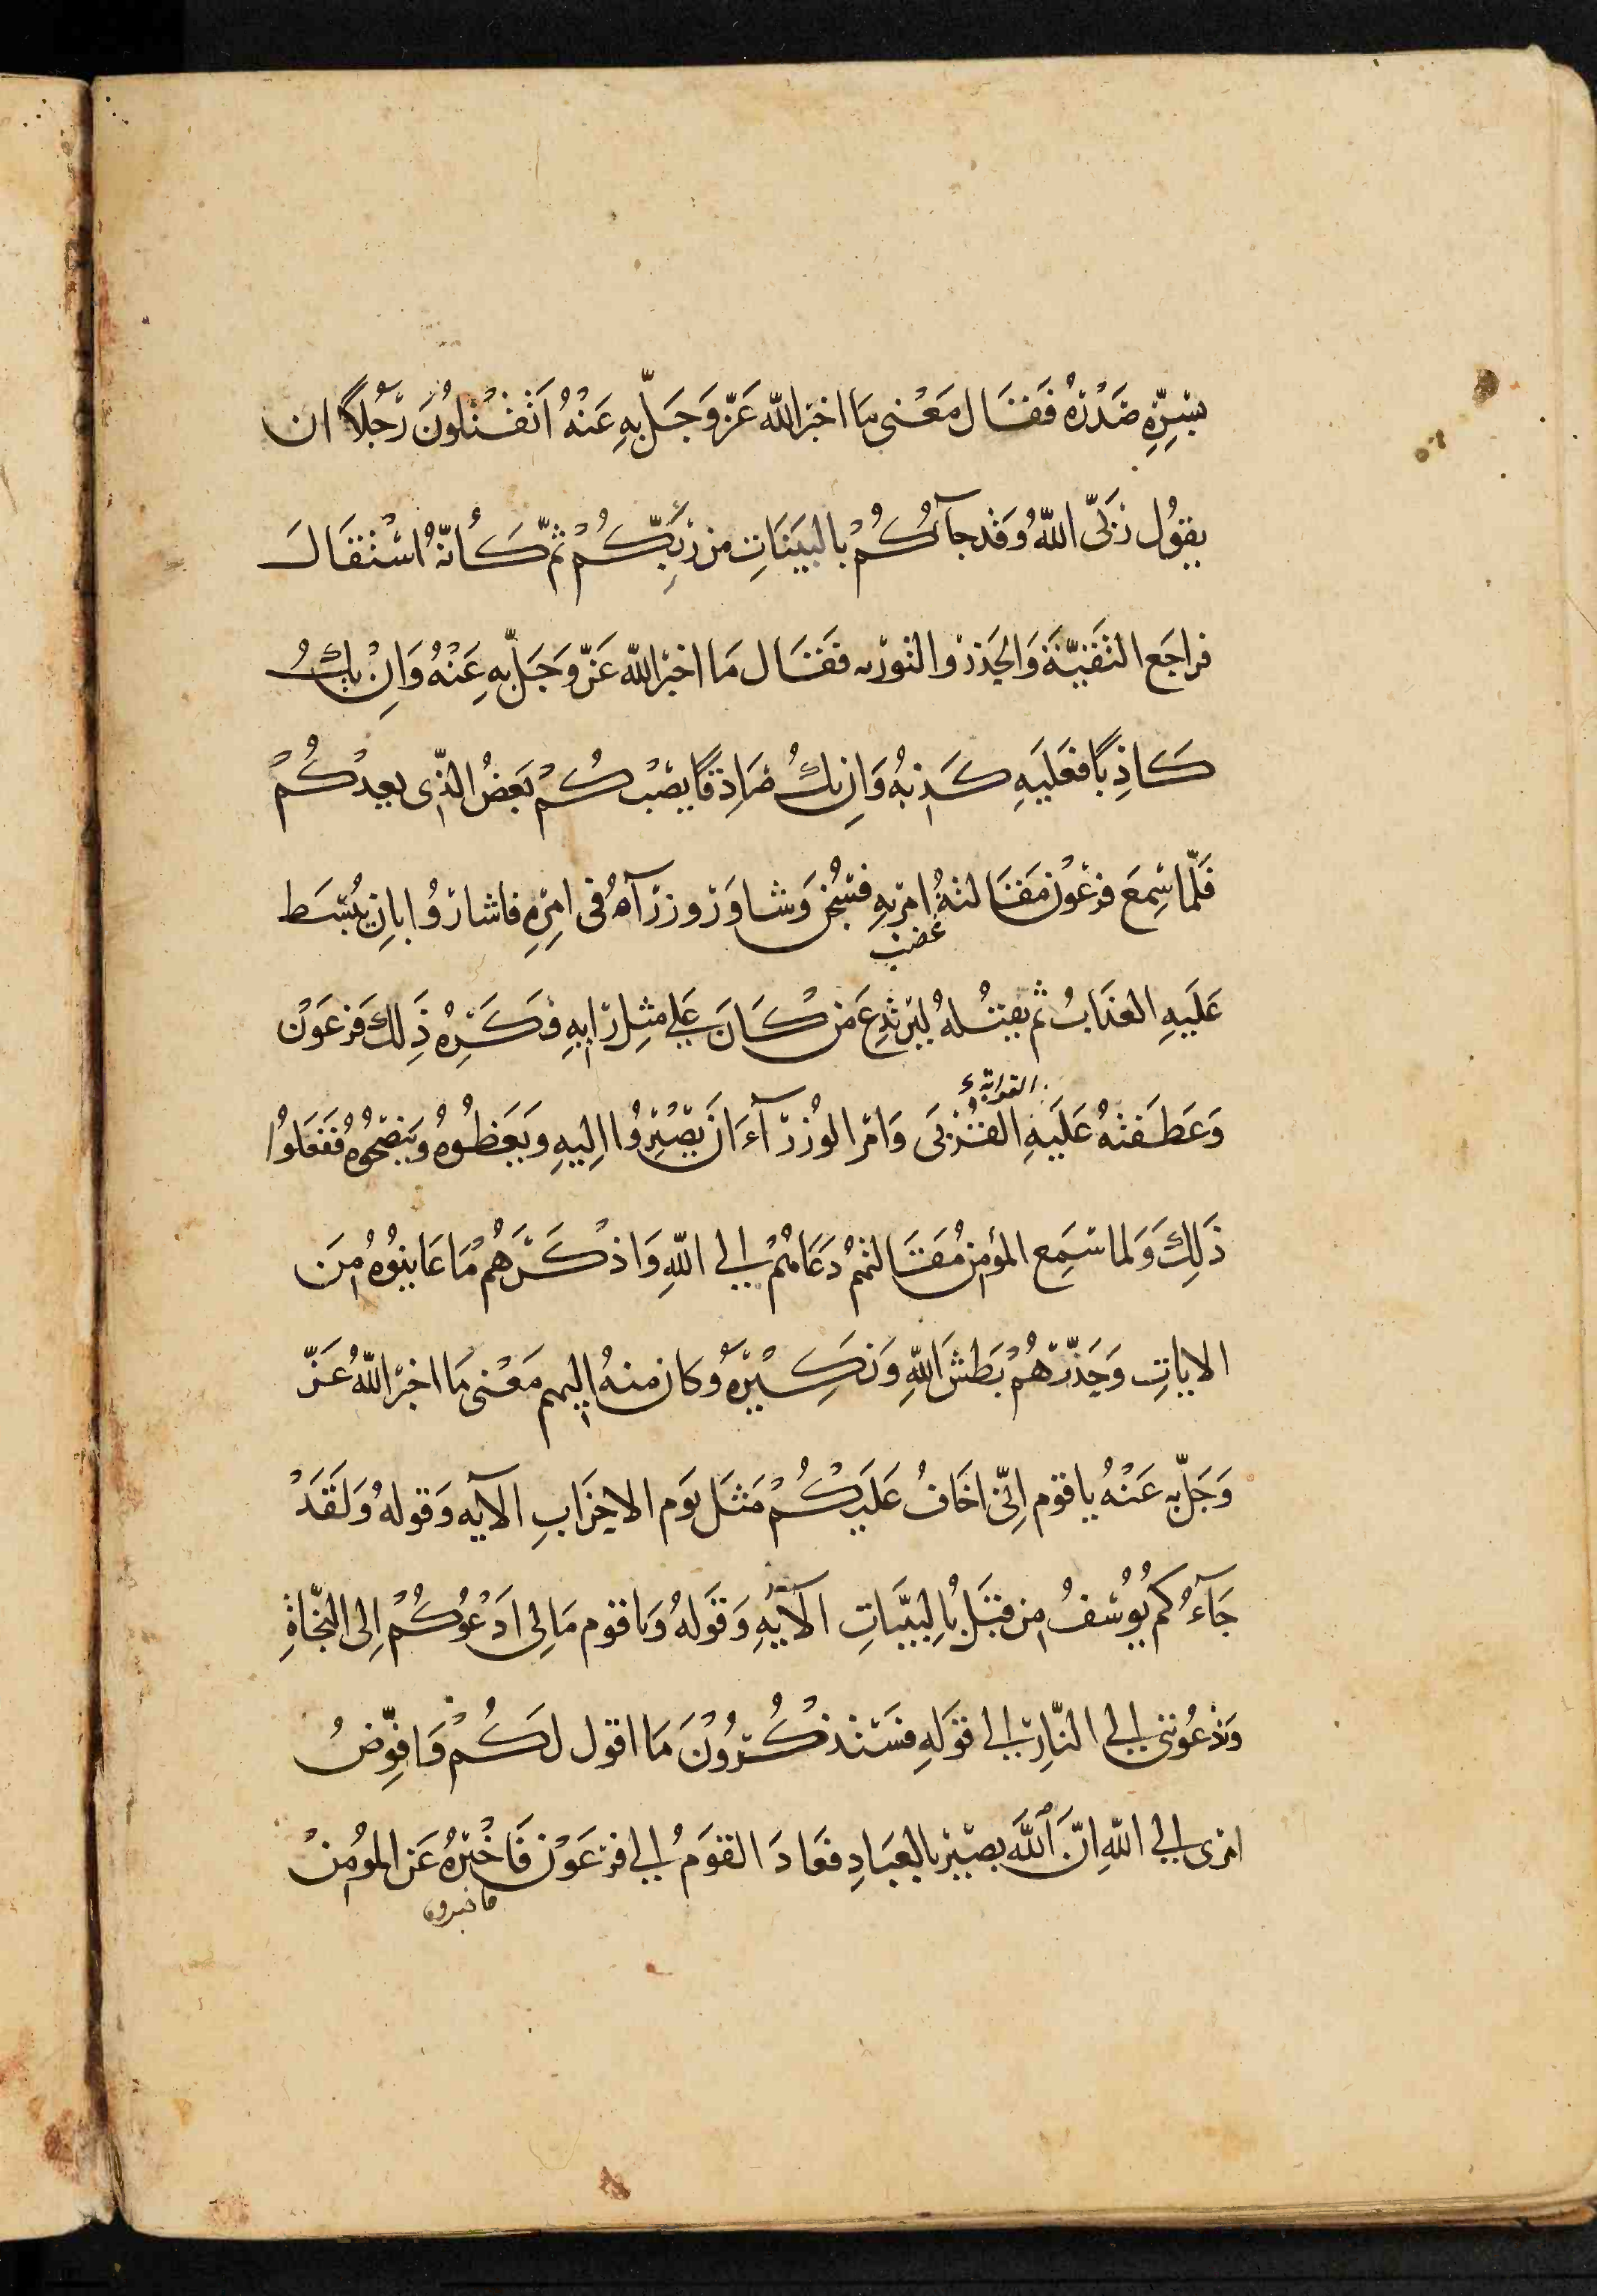 بسِرِّهِ صَدْرُهُ فَقَال مَعْنى مَا اخبرَ الله عَزّ وَجَلّ بِهِ عَنْهُ اَتَقْتُلُونَ رَجُلاً ان
يقوُل رَبّىَ اللهُ وَقدجآكُمْ بالبَيّنَاتِ من رَبِّكُمْ ثمّ كَأنّهُ اسْتقَالَ
فراجَع التَقيّةَ وَالحَذرَ والتوريه فقَال مَا اخبرَ الله عَزّ وَجَلّ بِهِ عَنْهُ وَاِنْ يكُ
كَاذِبًا فعَليَهِ كَذِبُهُ وَاِن يكُ صَادِقًا يصْبكُمْ بَعضُ الذّى يعِدُكُمْ
فَلَمّا سَمِعَ فرعَوْن مَقَالتهُ امرَ بهِ فسُجِنَ وَشاوَرَ وزرآهُ فى امرِهِ فاشارُوا باِن يُبسَط
غضب
عَلَيهِ العَذابُ ثم يقتُلهُ ليرتدِعَ مَن كَانَ عَلى مثِل رَايهِ فكَرِهَ ذَلِكَ فرعَوْن
القرابة
وَعَطفتهُ عَلَيهِ القُربَى وَامرَ الوُزرآءَ اَن يَصِيرُوا الِيهِ وَيَعَظُوهُ وَينصَحُوهُ ففَعَلوُا
ذَلِكَ وَلما سَمِع المؤمِن مَقَالتهُمْ دَعَاهُمْ الى اللهِ وَاذكَرَهُمْ مَا عَاينوُهُ مِنَ
الاياتِ وَحَذّرَهُمْ بَطشَ اللهِ وَنكيْرَهُ وَكان منهُ اليهم مَعْنى مَا اخبرَ اللهُ عَزّ
وَجَلّ به عَنْهُ يا قوم اِنّى اخَافُ عَلَيكُمْ مَثلَ يَوم الاحزَابِ الآيه وَقولهُ وَلَقَدْ
جَآءَكم يوُسُفُ مِن قبَلُ باِلبيّناتِ الآيهِ وَقَولهُ وَيا قوم مَا لِى ادَعُوكُمْ اِلى النّجَاةِ
وَتَدعُوننى الى النّارِ الى قَولهِ فسَتذكُرُونَ مَا اقول لَكُمْ وَافوِّضُ
امرى الى اللهِ اِنّ اَللهَ بصَيرٌ بالعِبَادِ فعَادَ القَومُ الى فرعَوْنَ فَاخبَرهُ عَن المؤُمِنْ
فاخبروه